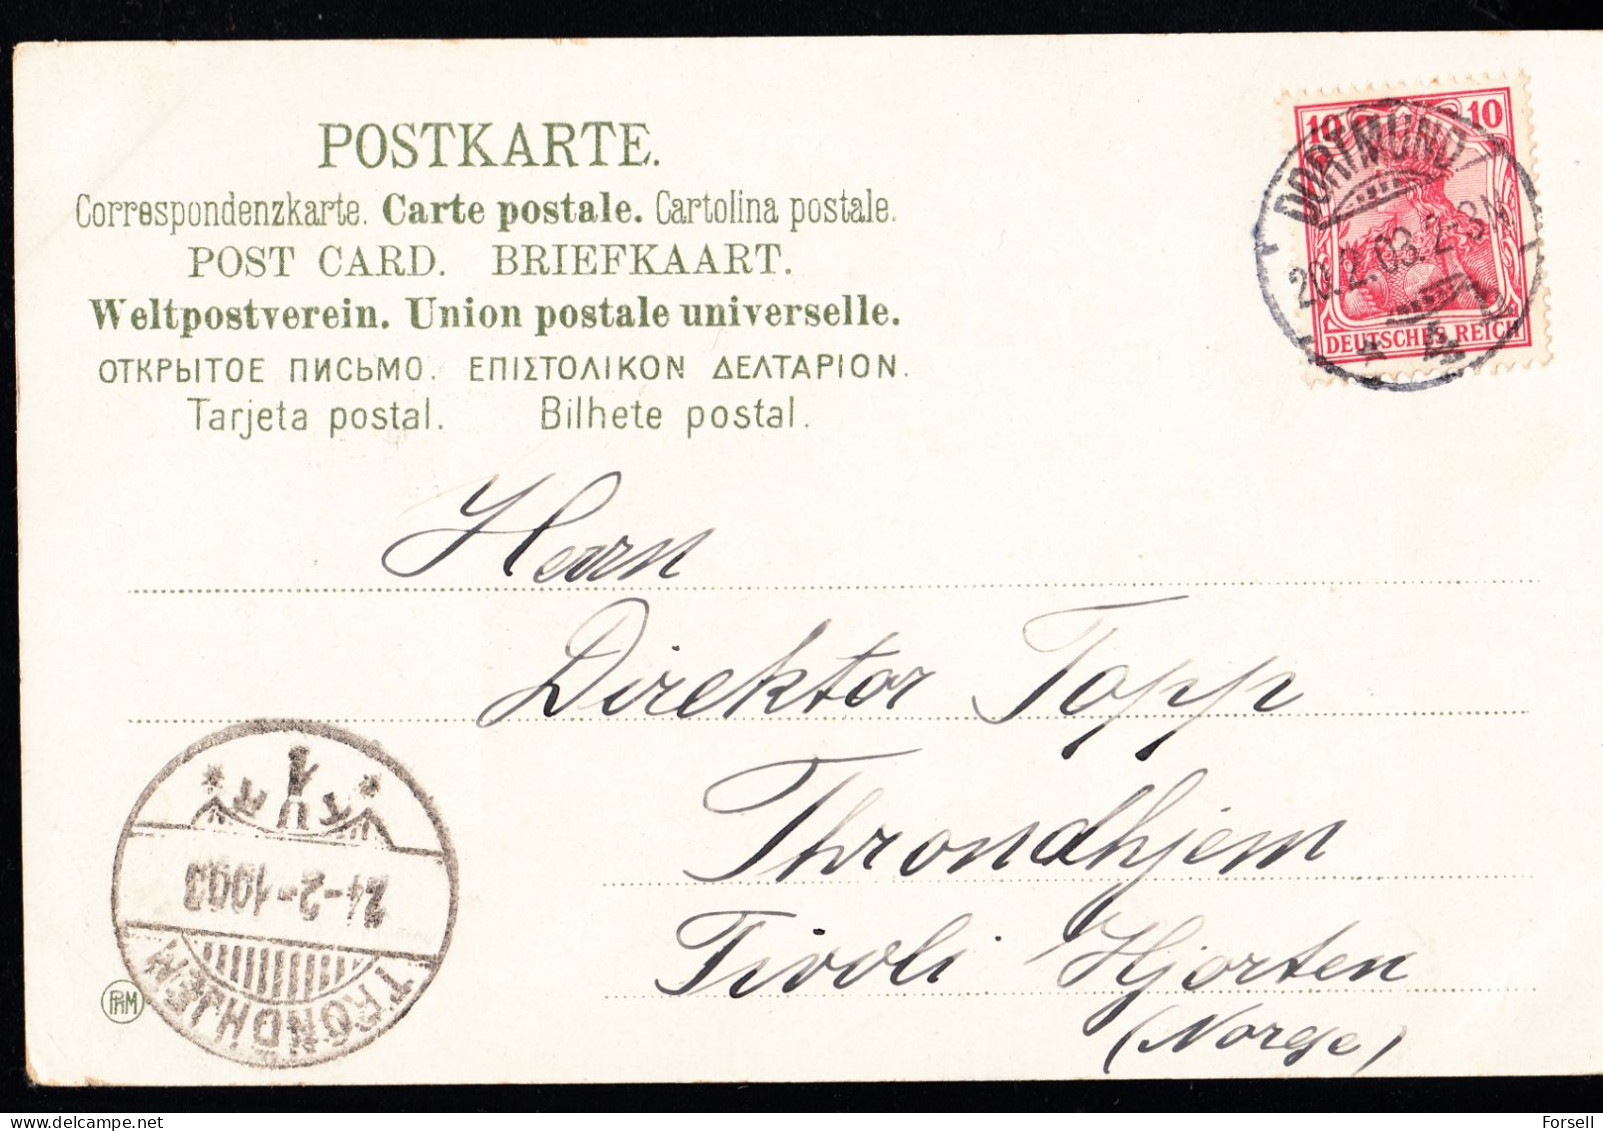 POSTKARTE.
Correspondenzkarte. Carte postale. Cartolina postale.
POST CARD. BRIEFKAART.
Weltpostverein. Union postale universelle.
ОТКРЫТОЕ ПИСЬМО. ΕΠΙΣΤΟΛΙΚΟΝ ΔΕΛΤΑΡΙΟΝ.
Tarjeta postal. Bilhete postal.
10 10
DORTMUND
20.2.03. 2-3N
DEUTSCHES REICH
Herrn
Direktor Topp
Throndhjem
Tivoli Hjorten
(Norge)
TRONDHJEM
24-2-1903
PHM
Forsell